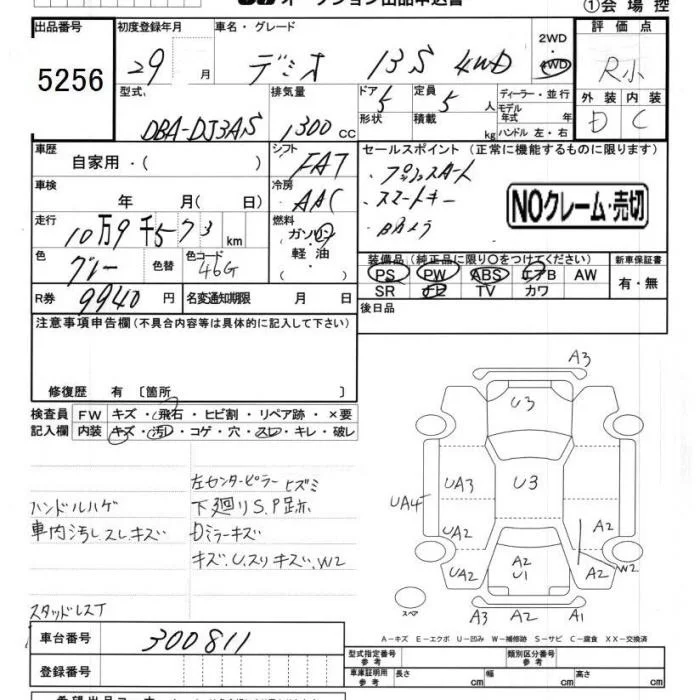 ①会場控
出品番号 初度登録年月 車名・グレード 2WD 4WD 評価点
5256 29 月 デミオ 13S 4WD R小
型式 排気量 ドア 定員 ディーラー・並行 外装 内装
DBA-DJ3AS 1300 CC 5 5 人 モデル年式 年 D C
形状 積載 kg ハンドル 左・右
車歴 シフト セールスポイント (正常に機能するものに限ります)
自家用・( ) FAT ・プッシュスタート
車検 冷房 ・スマートキー
年 月( 日) AAC ・Bカメラ
NOクレーム・売切
走行 燃料
10万9千573 km ガソリン・軽油・
色 色替 色コード 装備品 (純正品に限り○をつけてください) 新車保証書
グレー 46G PS PW ABS エアB AW 有・無
SR ナビ TV カワ
R券 9940 円 名変通知期限 月 日 後日品
注意事項申告欄 (不具合内容等は具体的に記入して下さい)
修復歴 有 〔箇所 〕
検査員 FW キズ・飛石・ヒビ割・リペア跡・×要
記入欄 内装 キズ・汚れ・コゲ・穴・スレ・キレ・破レ
ハンドルハゲ
車内汚し、スレ、キズ
スタッドレスT
左センターピラー ヒズミ
下廻りS.P跡
Dミラーキズ
キズ、U、スリキズ、W2
A3
U3
UA3 U3
UA4
UA2 A2
UA2 A2 U1 A2 W2
スペア
A3 A2 A1
A―キズ E―エクボ U―凹み W―補修跡 S―サビ C―腐食 XX―交換済
車台番号 300811
型式指定番号 参考 類別区分番号 参考
登録番号
車体証明用 参考 長さ cm 幅 cm 高さ cm